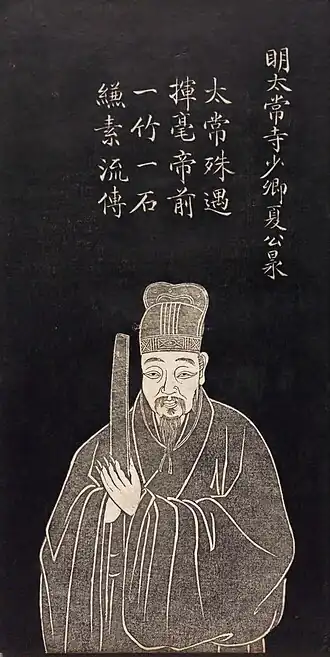 明太常寺少卿夏公㫤
太常殊遇
揮毫帝前
一竹一石
縑素流傳